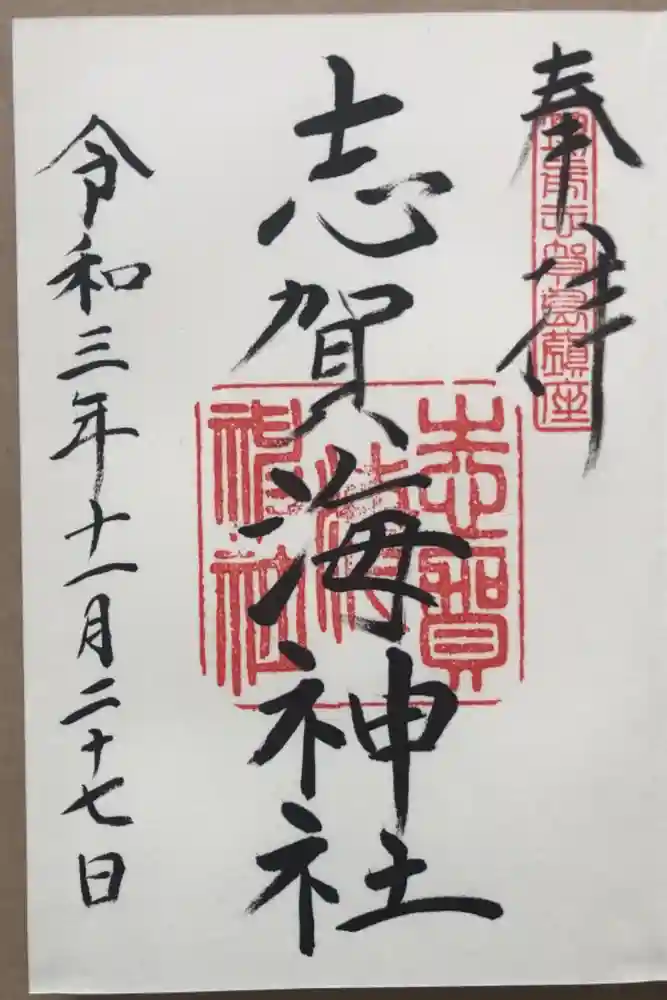 奉拝
筑前志賀島鎮座
志賀海神社
志賀
海
神社
令和三年十一月二十七日